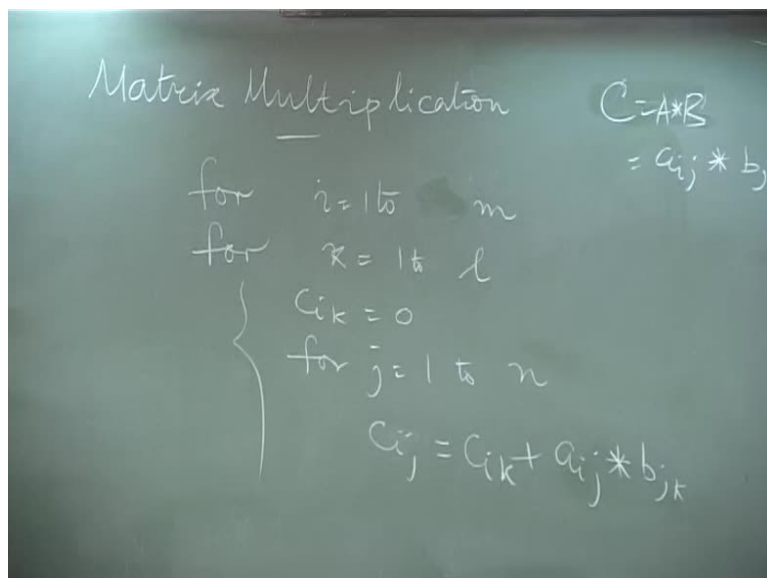 Matrix Multiplication
C=A*B
= aij * bj
for i=1 to m
for k=1 to l
Cik = 0
for j=1 to n
Cij = Cik + aij * bjk